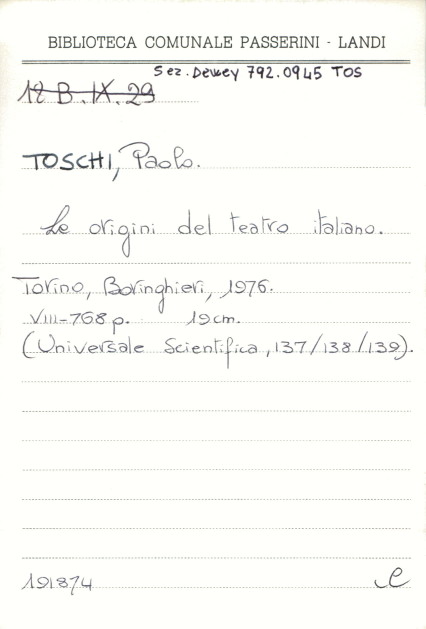 BIBLIOTECA COMUNALE PASSERINI - LANDI
Sez. Dewey 792.0945 TOS
12 B.IX.29
TOSCHI, Paolo.
Le origini del teatro italiano.
Torino, Boringhieri, 1976.
VIII-768 p. 19 cm.
(Universale Scientifica, 137/138/139).
191874